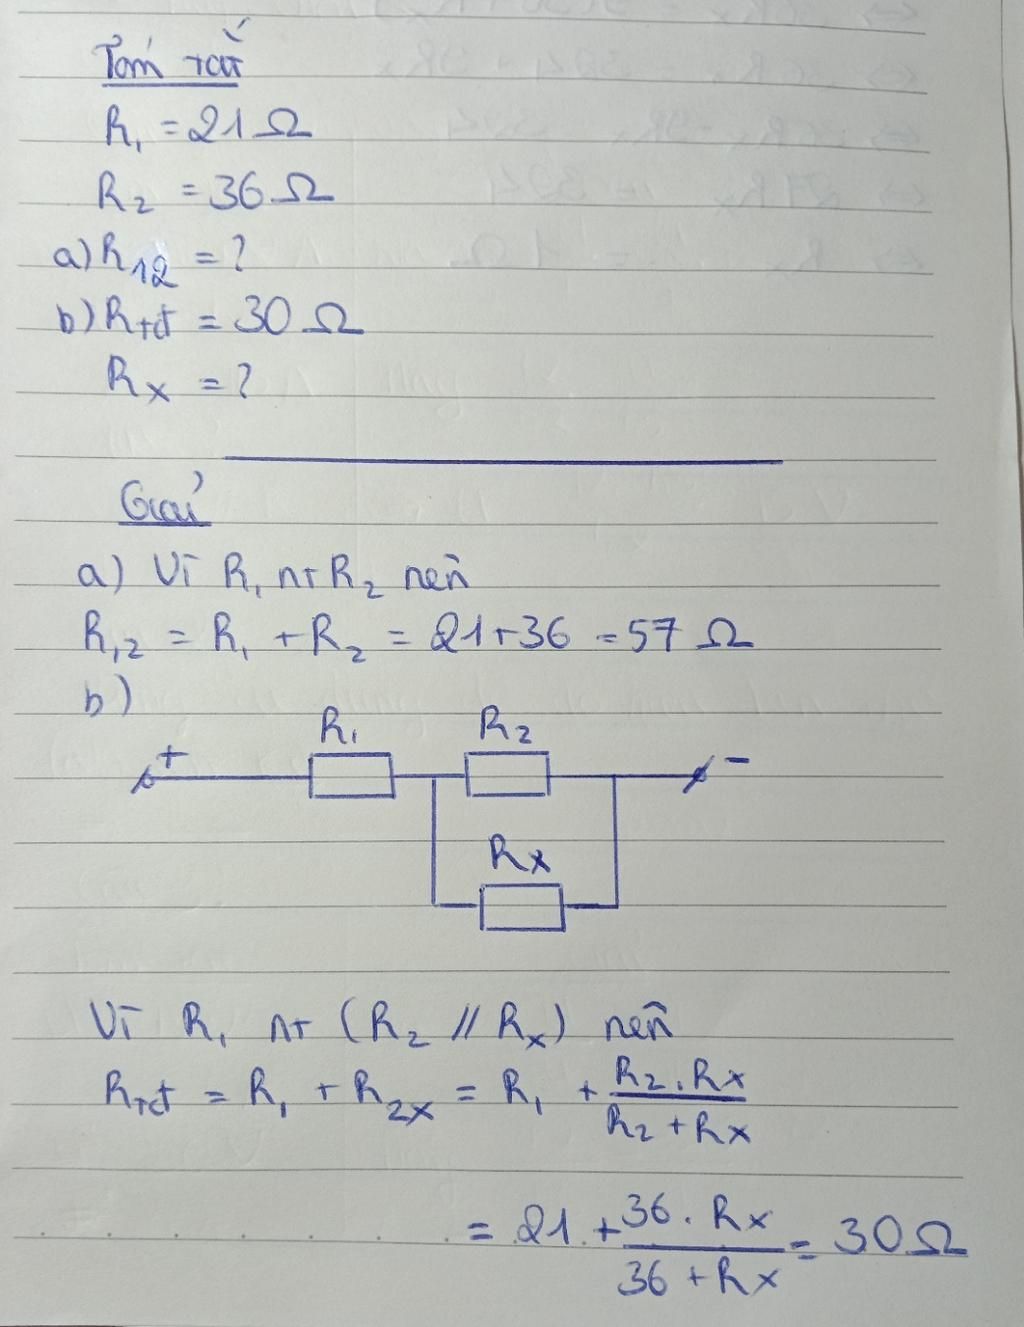 Tóm tắt
R₁ = 21 Ω
R₂ = 36 Ω
a) R₁₂ = ?
b) Rtđ = 30 Ω
Rx = ?
Giải
a) Vì R₁ nt R₂ nên
R₁₂ = R₁ + R₂ = 21 + 36 = 57 Ω
b)
R₁ R₂
+ -
Rx
Vì R₁ nt (R₂ // Rx) nên
Rtđ = R₁ + R₂x = R₁ + (R₂ . Rx)/(R₂ + Rx)
= 21 + (36 . Rx)/(36 + Rx) = 30 Ω